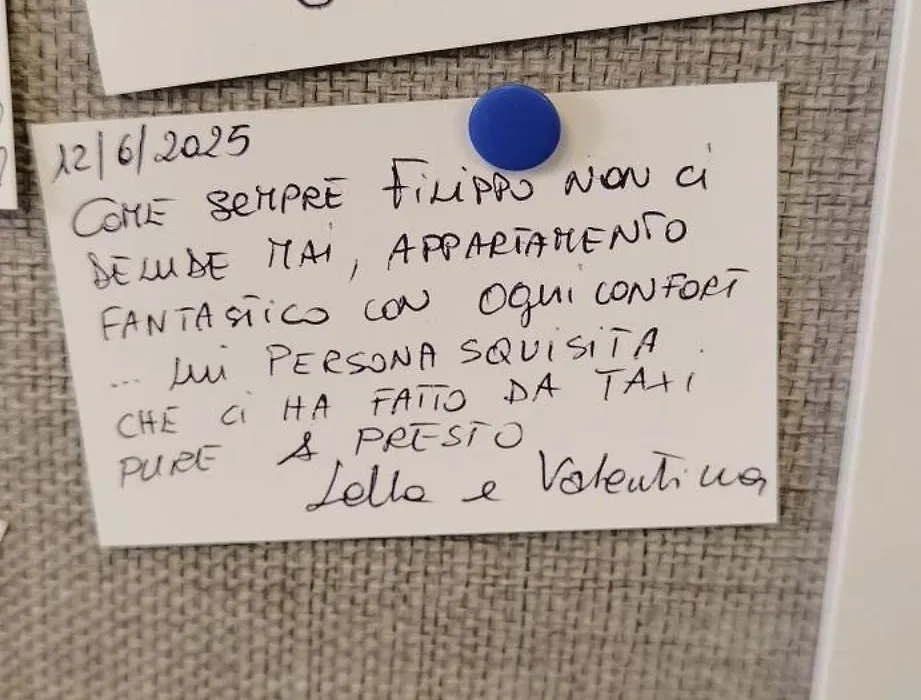 12/6/2025
COME SEMPRE FILIPPO NON Ci
DELUDE MAi, APPARTAMENTO
FANTASTiCO CON OgNi CONFORT
... Lui PERSONA SQUiSiTA.
CHE Ci HA FATTO DA TAXi
PURE A PRESTO
Lella e Valentina